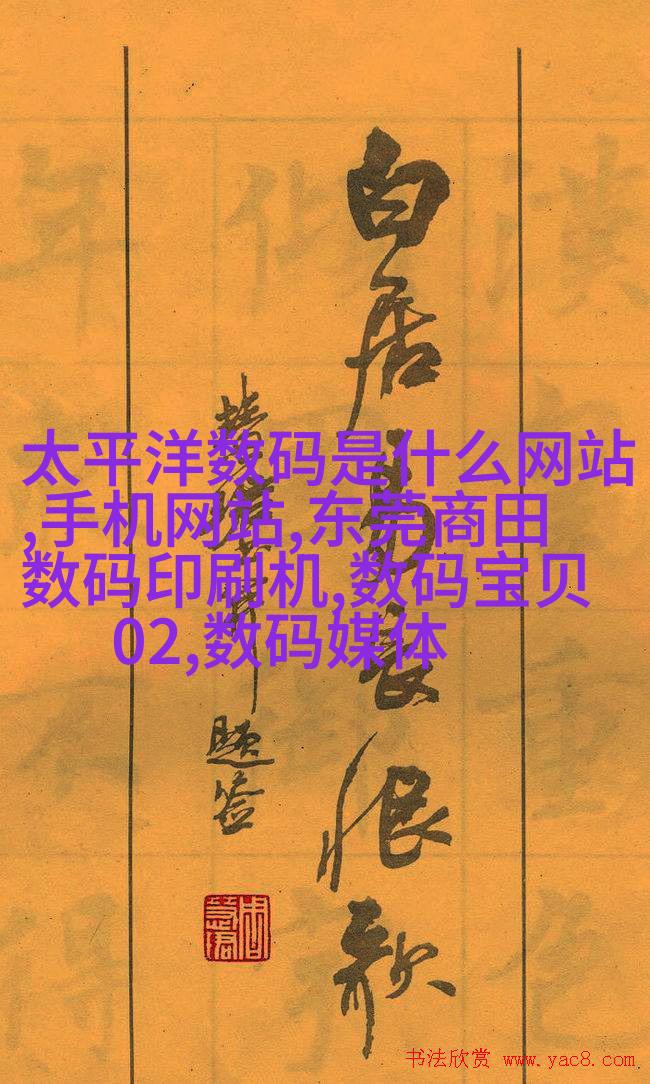 太平洋数码是什么网站
,手机网站,东莞商田
数码印刷机,数码宝贝
02,数码媒体
白居易長恨歌
題签
书法欣赏 www.yac8.com